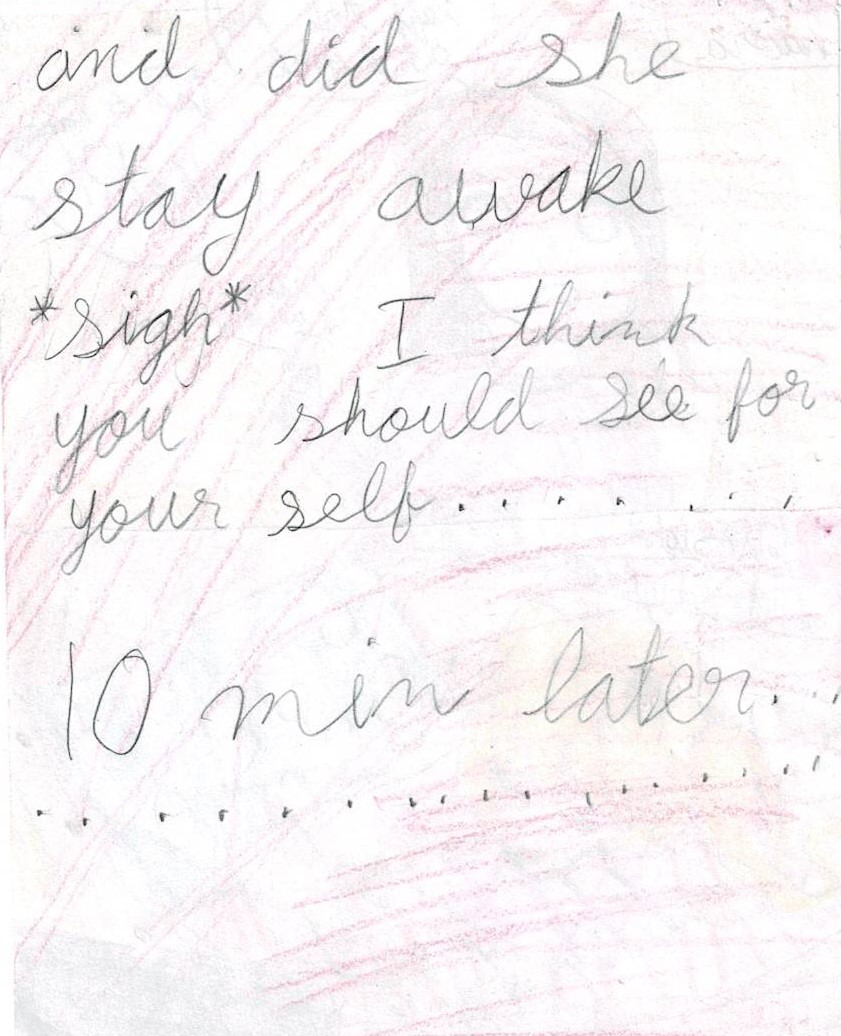 and did she
stay awake
*sigh* I think
you should see for
your self........
10 min later...
..............